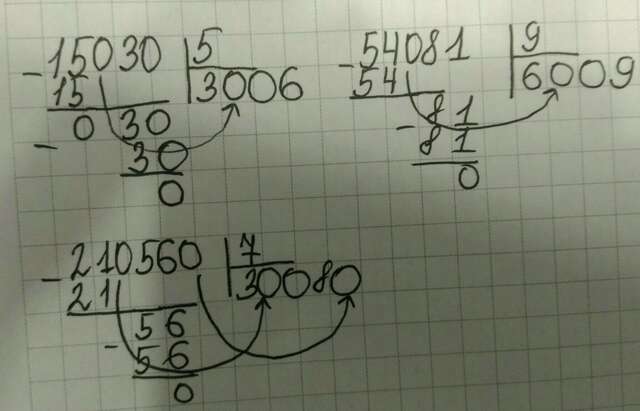 -15030 | 5
15 3006
0 30
- 30
0
-54081 | 9
54 6009
81
- 81
0
-210560 | 7
21 30080
56
- 56
0